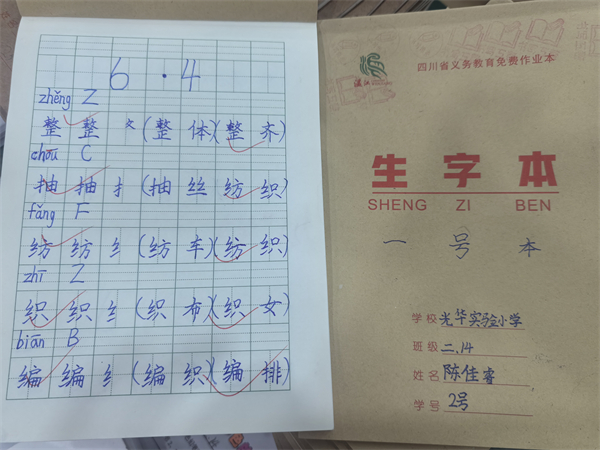 6·4
zhěng Z
整 整 攵(整 体)(整 齐)
chōu C
抽 抽 扌(抽 丝 纺 织)
fǎng F
纺 纺 纟(纺 车)(纺 织)
zhī Z
织 织 纟(织 布)(织 女)
biān B
编 编 纟(编 织)(编 排)
温江
四川省义务教育免费作业本
生字本
SHENG ZI BEN
一号本
学校 光华实验小学
班级 二.14
姓名 陈佳睿
学号 2号